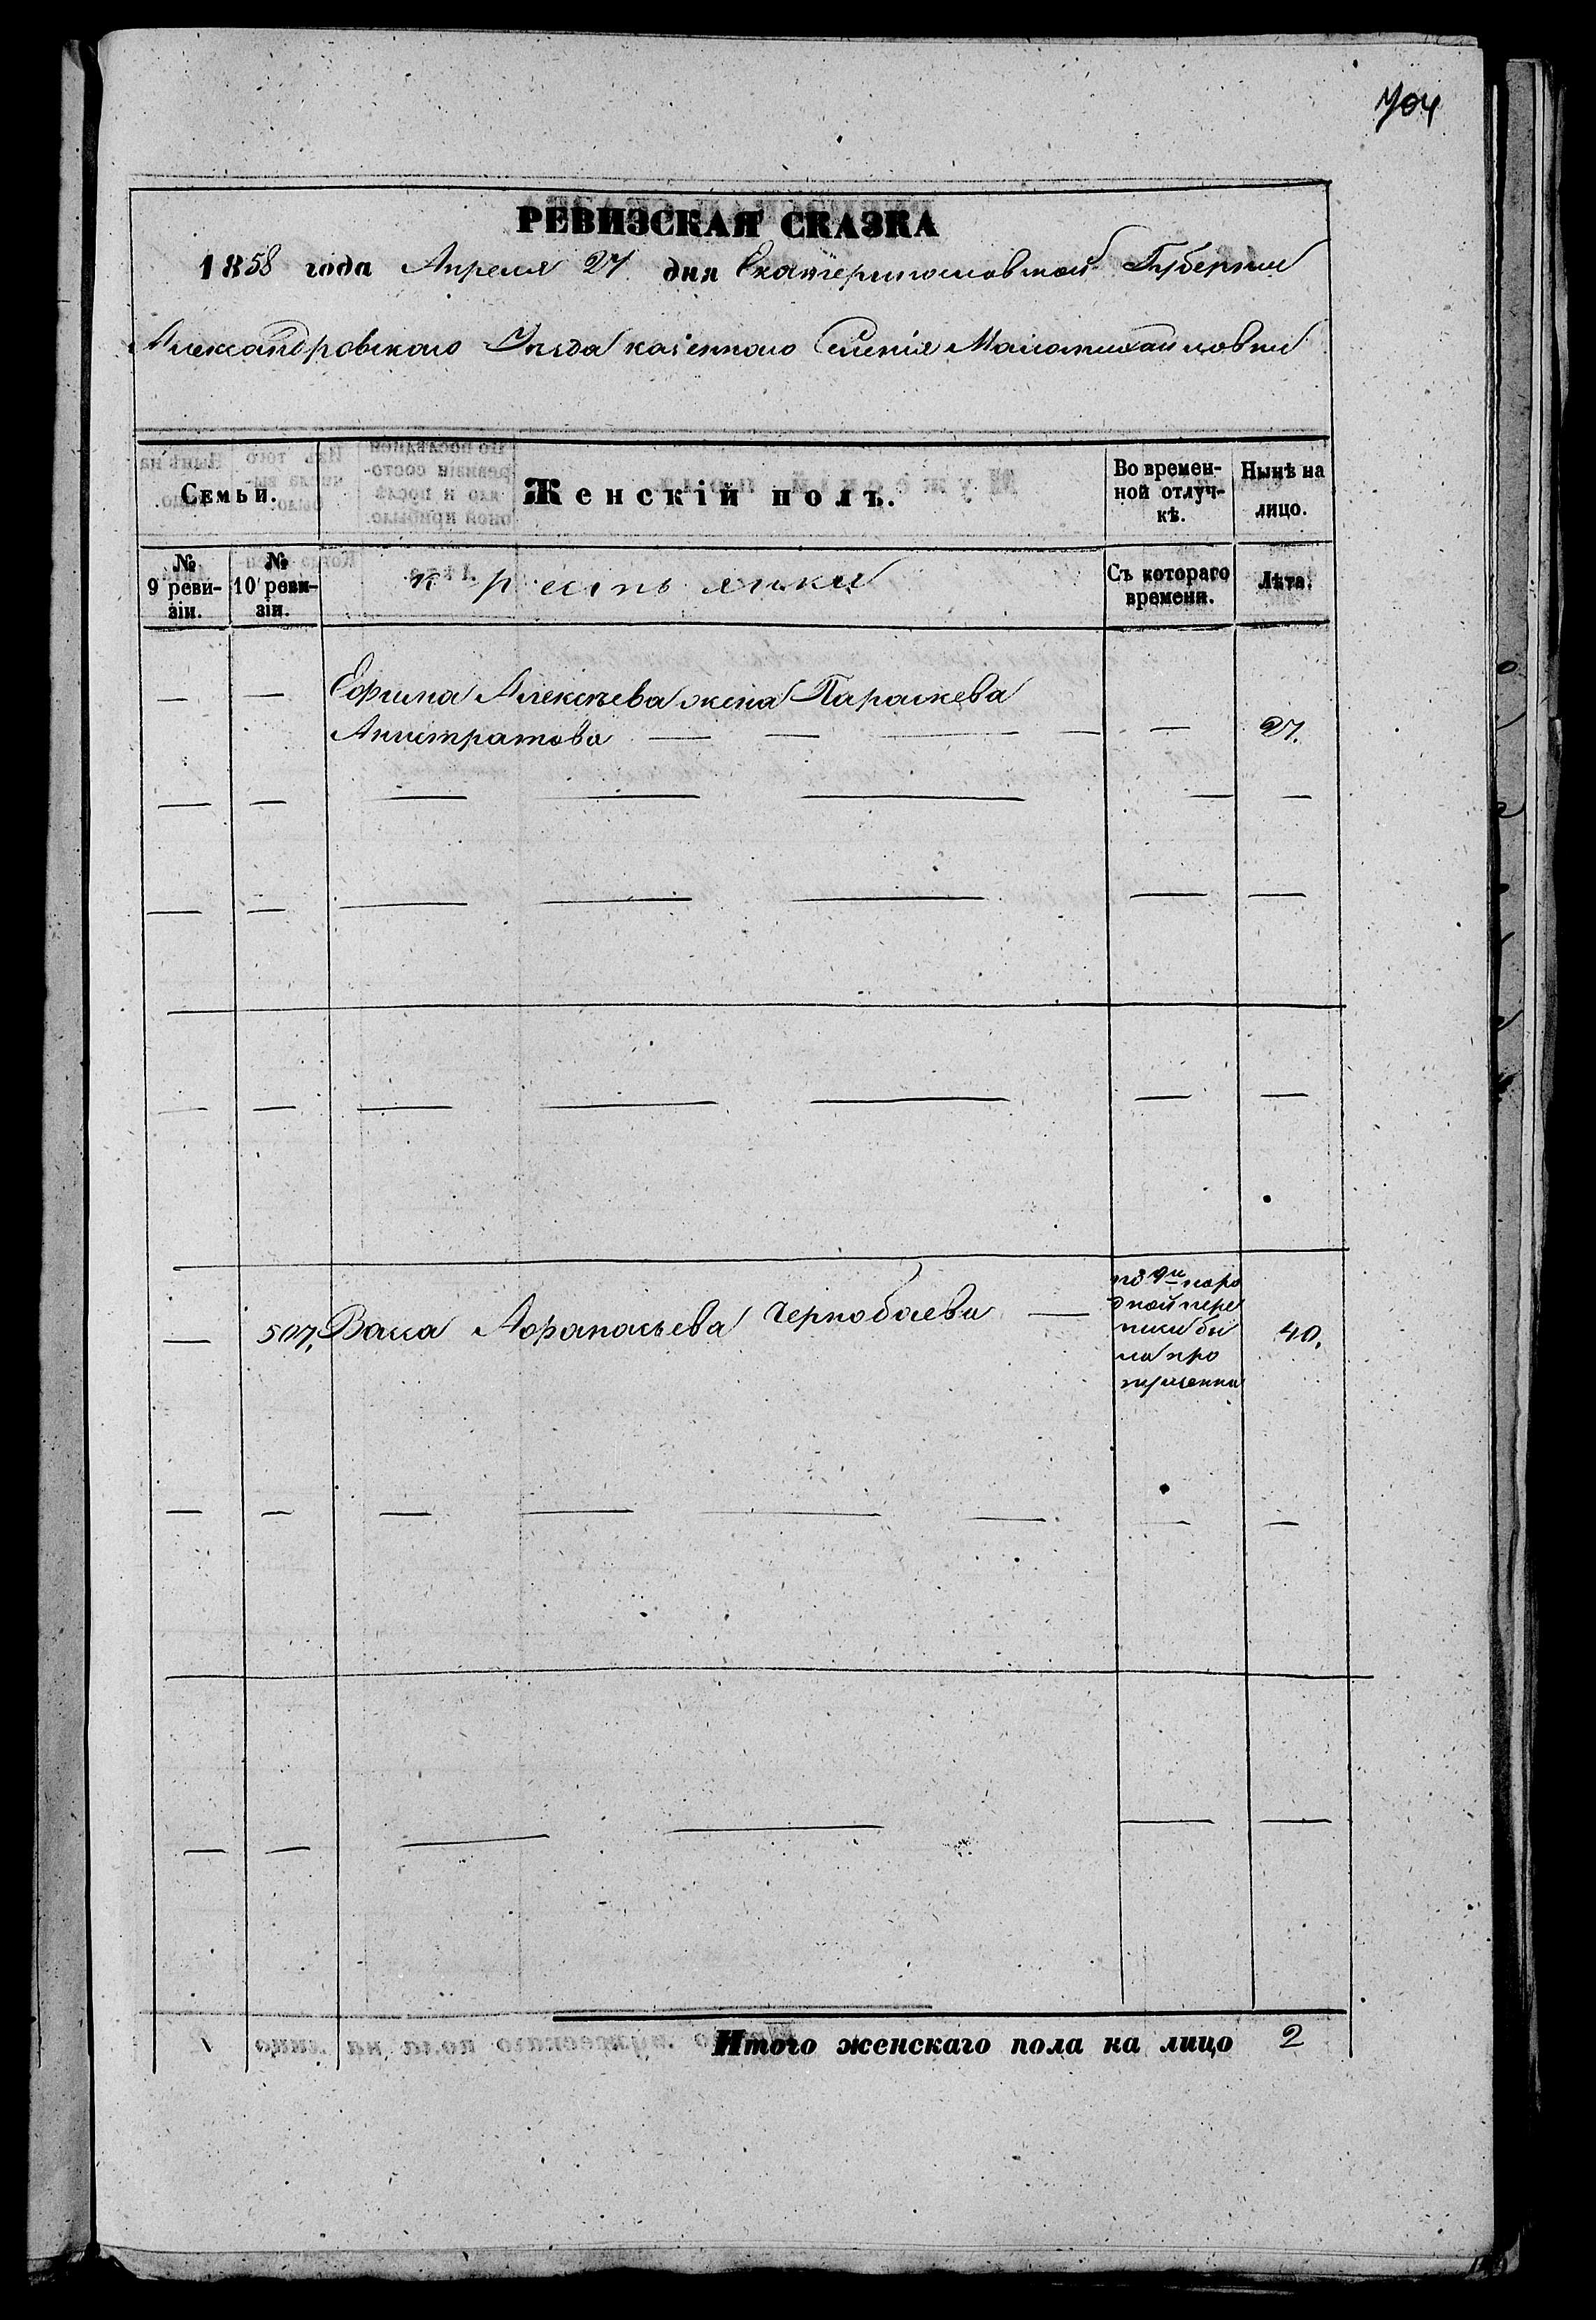 704
РЕВИЗСКАЯ СКАЗКА
1858 года Апреля 27 дня Екатеринославской Губернии
Александровского Уезда казенного Селенія Маломихайловки
Семьи.
Женскій полъ.
Во времен-
ной отлуч-
кѣ.
Нынѣ на
лицо.
№
9 реви-
зіи.
№
10 реви-
зіи.
крестьянки
Съ котораго
времени.
Лѣта.
— — Ефима Алексѣева жена Параскева
Анистратова — — — — — 27.
— 507. Васса Афанасьева Чернобаева — 40.
по 9й наро
дной пере
писи бы
ла про
пущенна
Итого женскаго пола на лицо 2